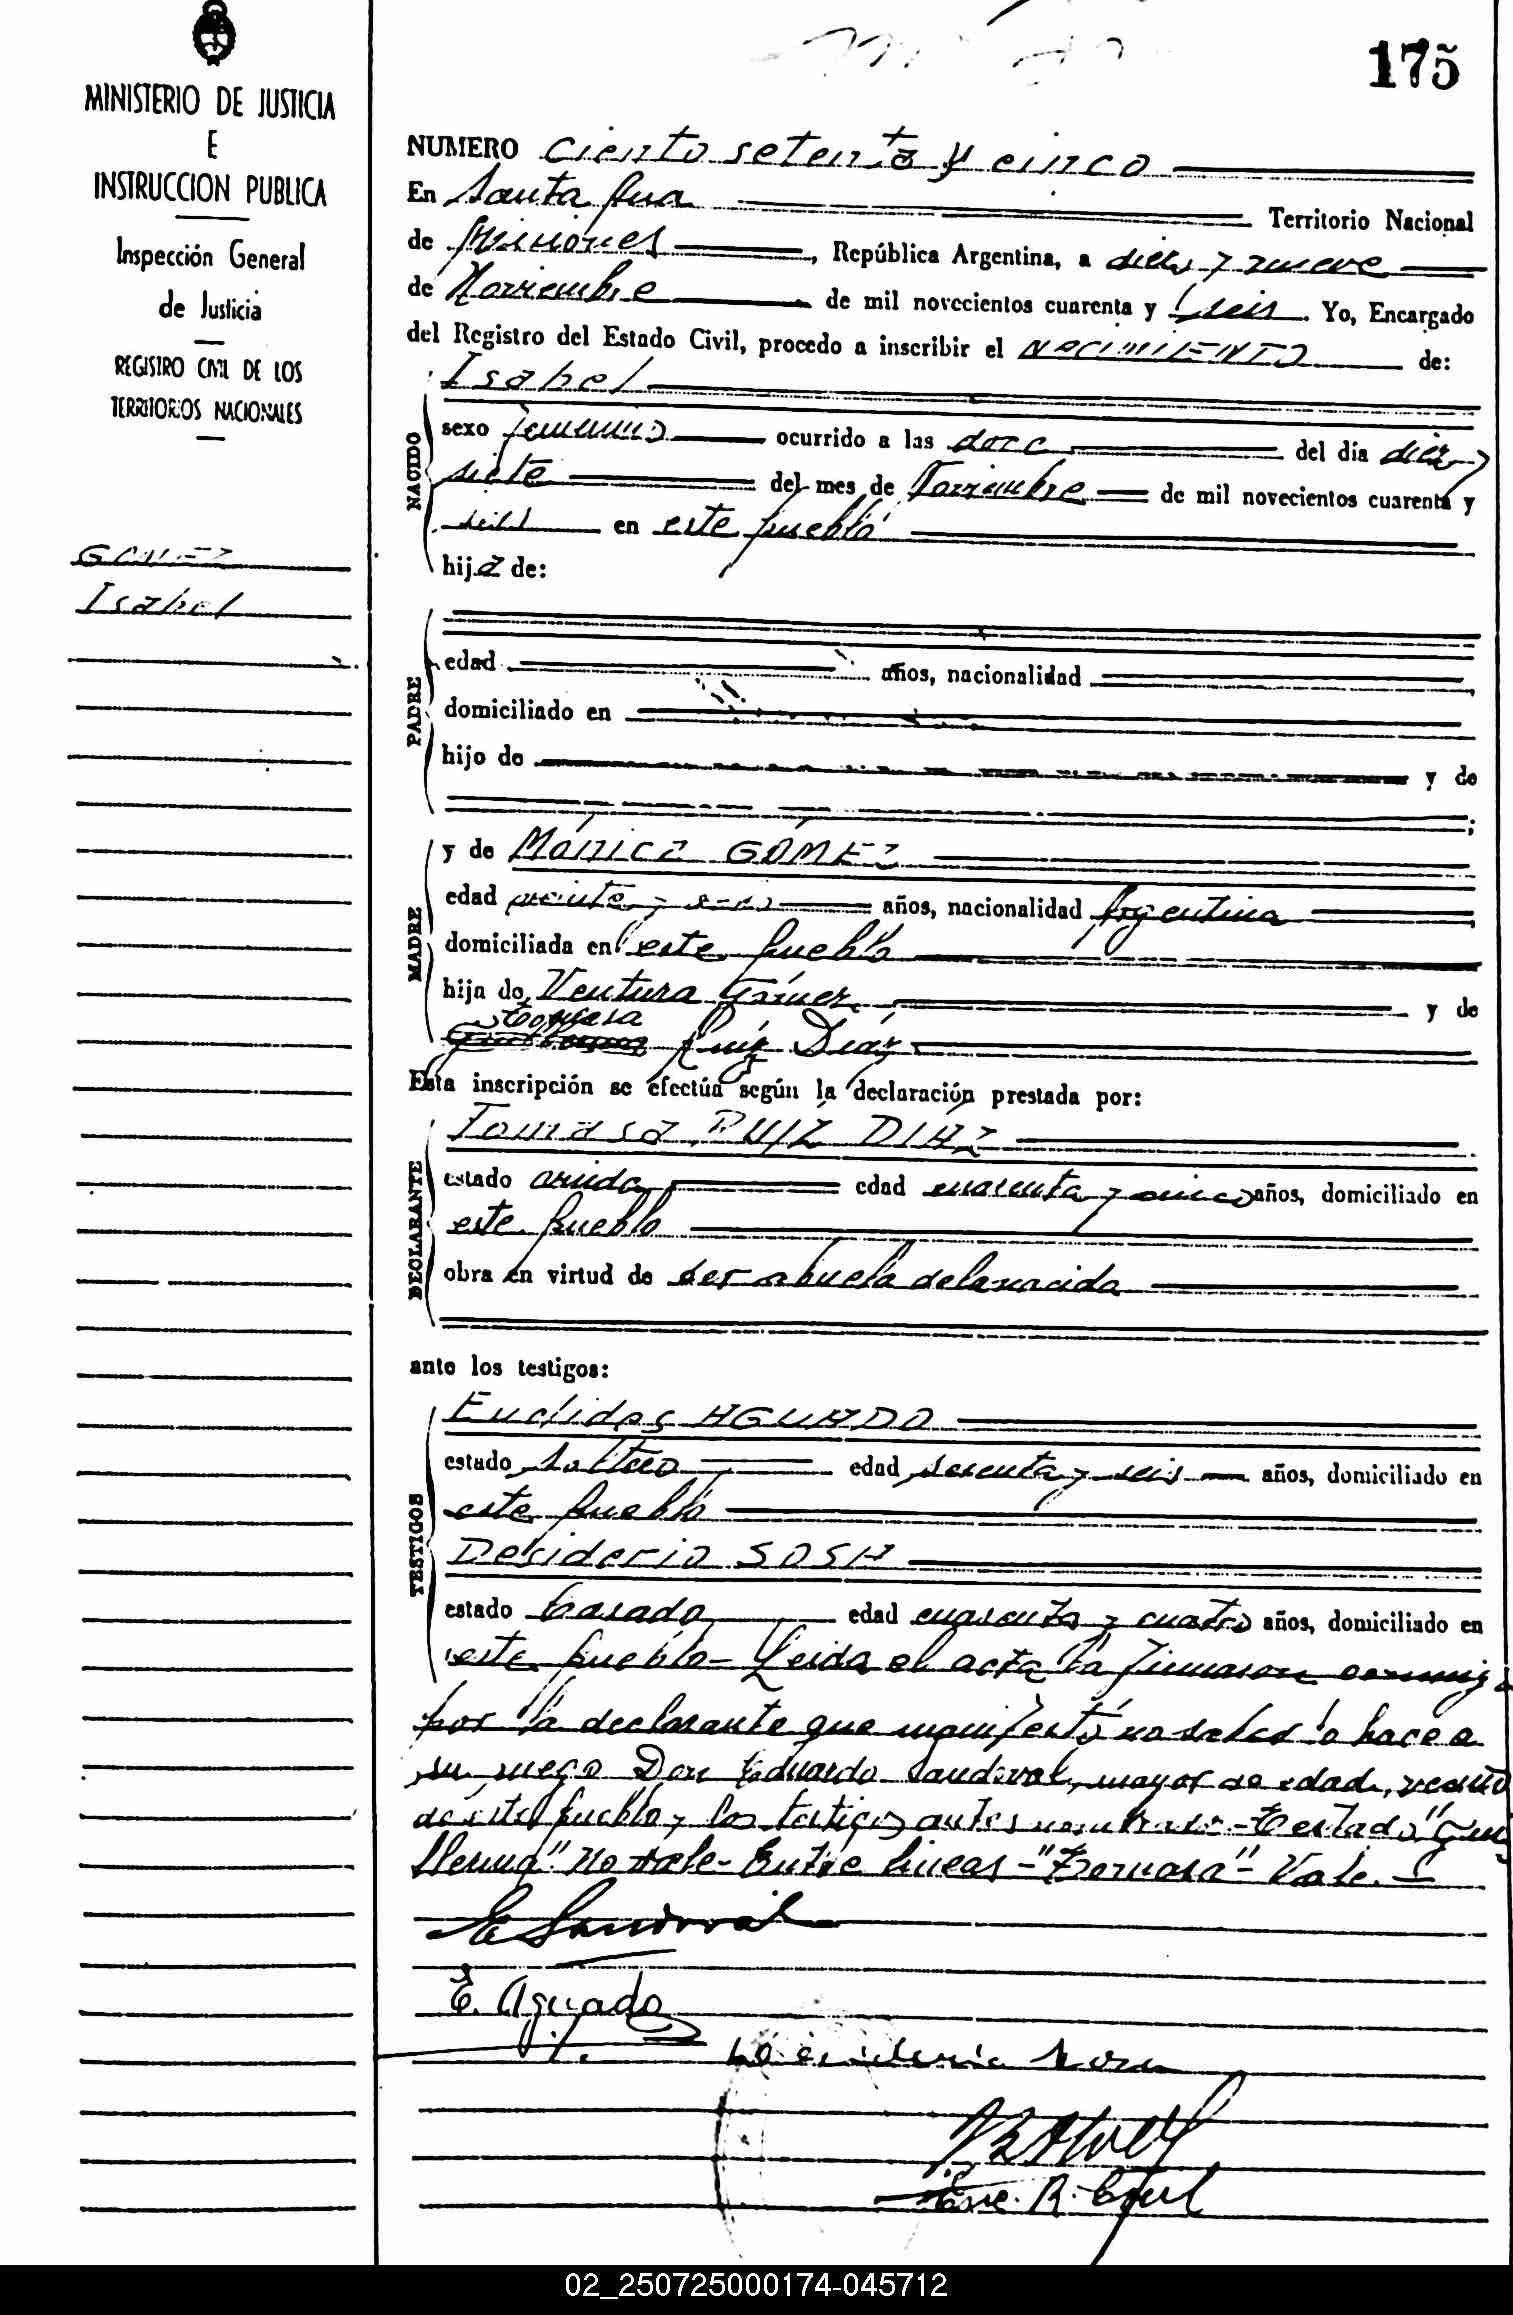 175
MINISTERIO DE JUSTICIA
E
INSTRUCCION PUBLICA
Inspección General
de Justicia
REGISTRO CIVIL DE LOS
TERRITORIOS NACIONALES
GOMEZ
Isabel
NUMERO Ciento setenta y cinco
En Santa Ana Territorio Nacional
de Misiones, República Argentina, a diez y nueve
de Noviembre de mil novecientos cuarenta y seis. Yo, Encargado
del Registro del Estado Civil, procedo a inscribir el NACIMIENTO de:
NACIDO
Isabel
sexo femenino ocurrido a las doce del día diez y
siete del mes de Noviembre de mil novecientos cuarenta y
seis en este pueblo
hija de:
PADRE
edad años, nacionalidad
domiciliado en
hijo de y de
;
MADRE
y de Mónica GÓMEZ
edad veinte y años, nacionalidad Argentina
domiciliada en este pueblo
hija de Ventura Gómez y de
Tomasa
Ruíz Díaz
Esta inscripción se efectúa según la declaración prestada por:
DECLARANTE
Tomasa RUIZ DIAZ
estado viuda edad cuarenta y cinco años, domiciliado en
este pueblo
obra en virtud de ser abuela de la nacida
ante los testigos:
TESTIGOS
Euclides AGUADO
estado soltero edad sesenta y seis años, domiciliado en
este pueblo
Desiderio SOSA
estado Casado edad cuarenta y cuatro años, domiciliado en
este pueblo - Leida el acta la firmaron conmigo
por la declarante que manifestó no saber lo hace a
su ruego Don Eduardo Sandoval, mayor de edad, vecino
de este pueblo y los testigos antes nombrados - Testado "Gui
llerma" no vale - Entre lineas - "Tomasa" - Vale.
E Sandoval
E. Aguado
Desiderio Sosa
Enc. R. Civil
02_250725000174-045712